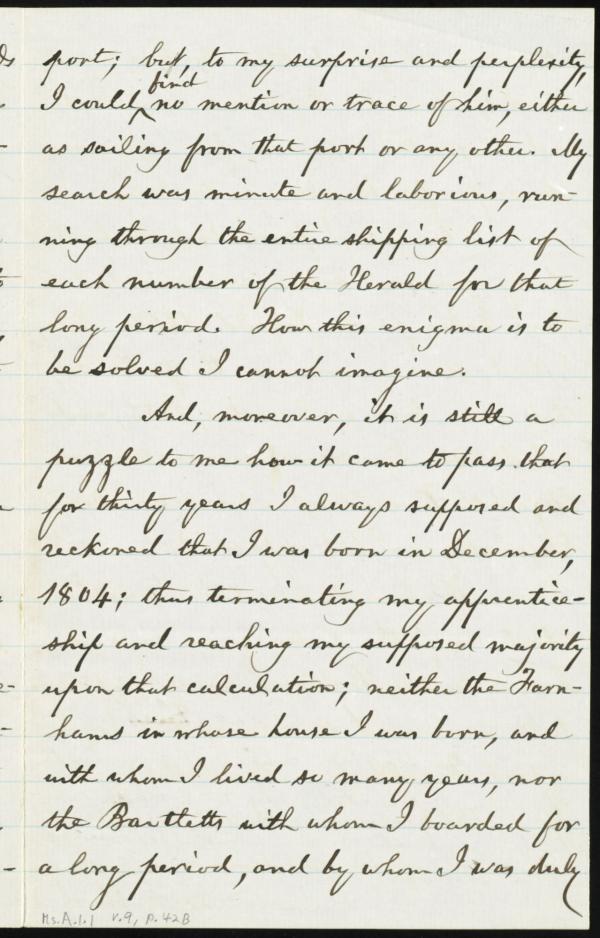 port; but, to my surprise and perplexity,
find
I could ^ no mention or trace of him, either
as sailing from that port or any other. My
search was minute and laborious, run-
ning through the entire shipping list of
each number of the Herald for that
long period. How this enigma is to
be solved I cannot imagine.
And, moreover, it is still a
puzzle to me how it came to pass that
for thirty years I always supposed and
reckoned that I was born in December,
1804; thus terminating my apprentice-
ship and reaching my supposed majority
upon that calculation; neither the Farn-
hams in whose house I was born, and
with whom I lived so many years, nor
the Bartletts with whom I boarded for
a long period, and by whom I was duly
Ms.A.1.1 v.9, p.42B